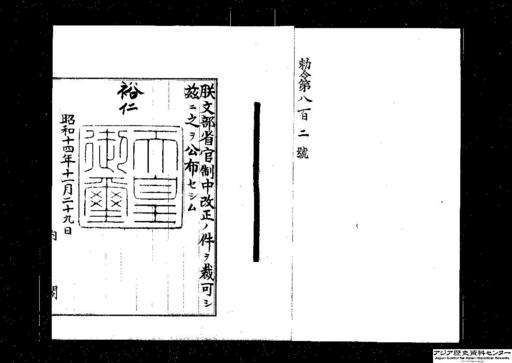 勅令第八百二號
朕文部省官制中改正ノ件ヲ裁可シ
茲ニ之ヲ公布セシム
裕仁
天皇
御璽
昭和十四年十一月二十九日
内
閣
アジア歴史資料センター
Japan Center for Asian Historical Records